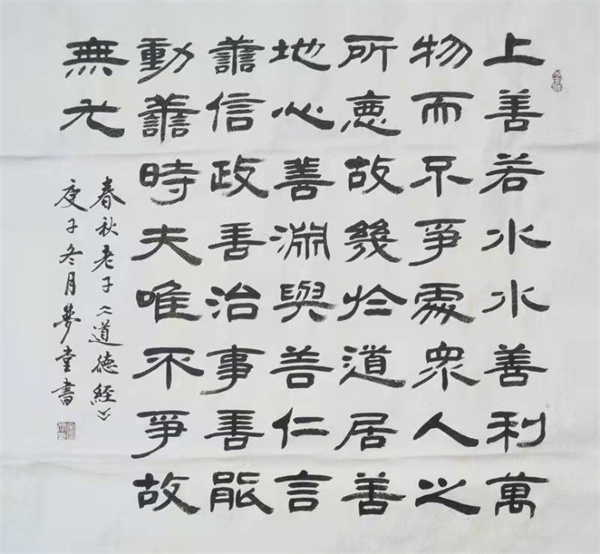 上善若水水善利萬
物而不爭處衆人之
所惡故幾於道居善
地心善淵與善仁言
譱信政善治事善能
動譱時夫唯不爭故
無尤
春秋老子《道德經》
庚子冬月夢堂書